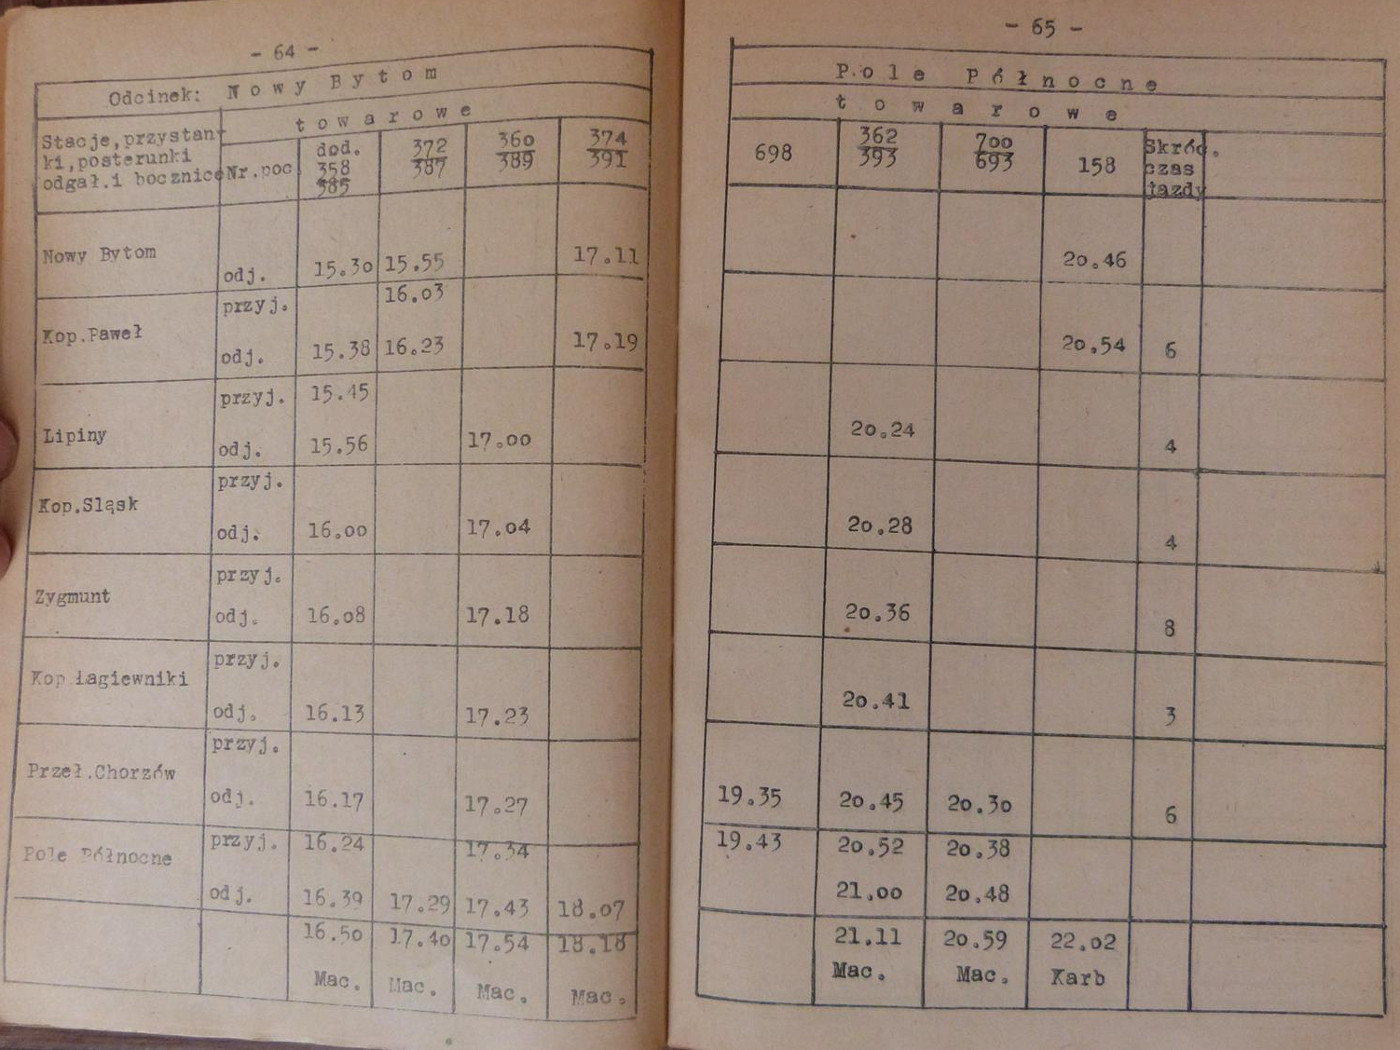 - 64 -
Odcinek: Nowy Bytom
Stacje,przystan-
ki,posterunki
odgał.i bocznice
towarowe
Nr.poc
dod.
358
385
372
387
360
389
374
391
Nowy Bytom odj. 15.30 15.55 17.11
przyj. 16.03
Kop.Paweł
odj. 15.38 16.23 17.19
przyj. 15.45
Lipiny
odj. 15.56 17.00
przyj.
Kop.Sląsk
odj. 16.00 17.04
przyj.
Zygmunt
odj. 16.08 17.18
przyj.
Kop.Łagiewniki
odj. 16.13 17.23
przyj.
Przeł.Chorzów
odj. 16.17 17.27
przyj. 16.24 17.34
Pole Północne
odj. 16.39 17.29 17.43 18.07
16.50 17.40 17.54 18.18
Mac. Mac. Mac. Mac.
- 65 -
Pole Północne
towarowe
698
362
393
700
693
158
Skróc.
czas
jazdy
20.46
20.54 6
20.24 4
20.28 4
20.36 8
20.41 3
19.35 20.45 20.30 6
19.43 20.52 20.38
21.00 20.48
21.11 20.59 22.02
Mac. Mac. Karb